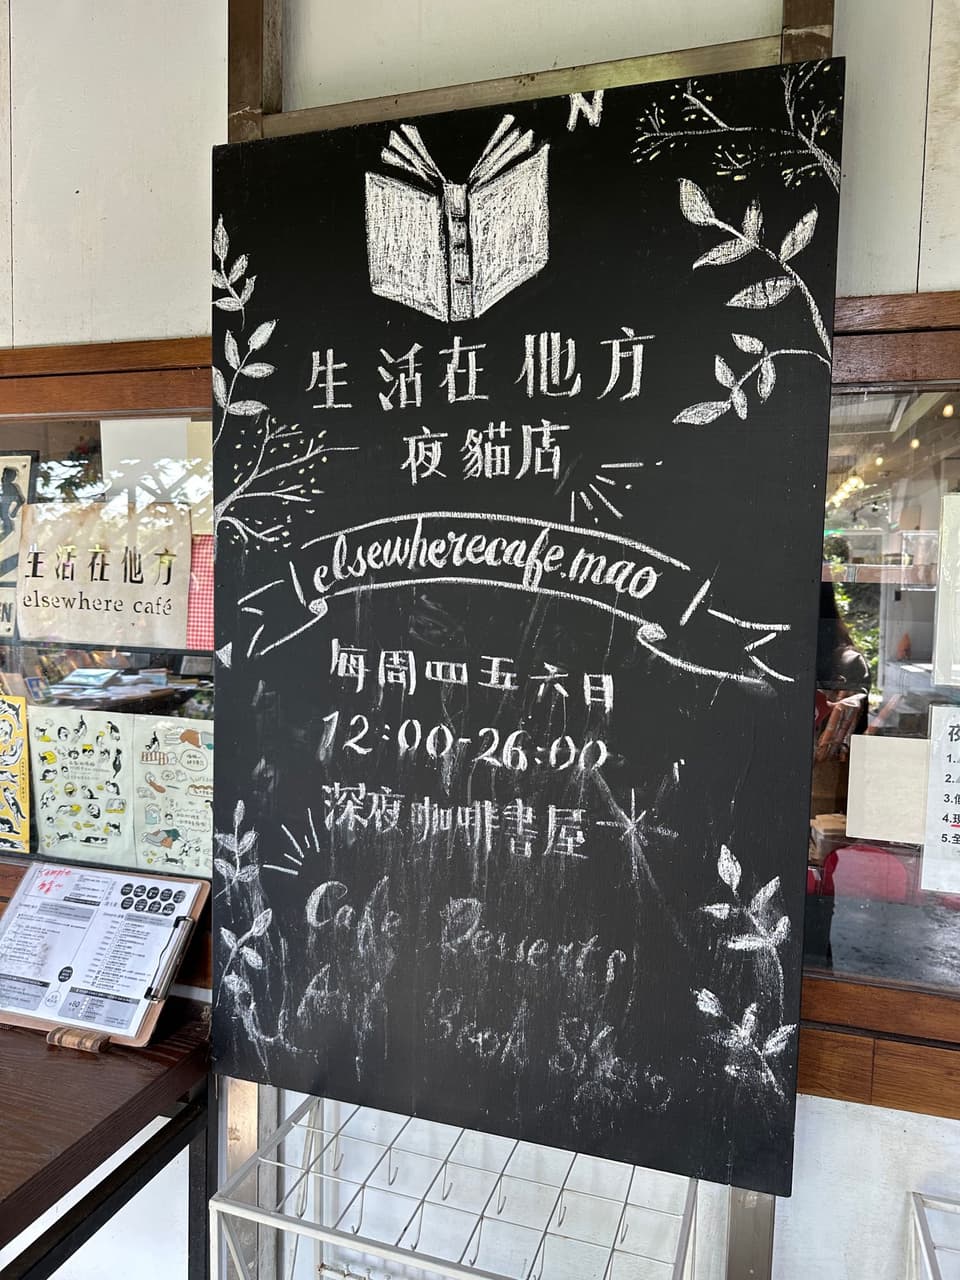 N
生活在他方
夜貓店
elsewherecafe.mao
每周四五六日
12:00-26:00
深夜咖啡書屋
Cafe Desserts
And Book Store
生活在他方
elsewhere café
EN
Sample
夜
1.
2.
3.
4.現
5.全